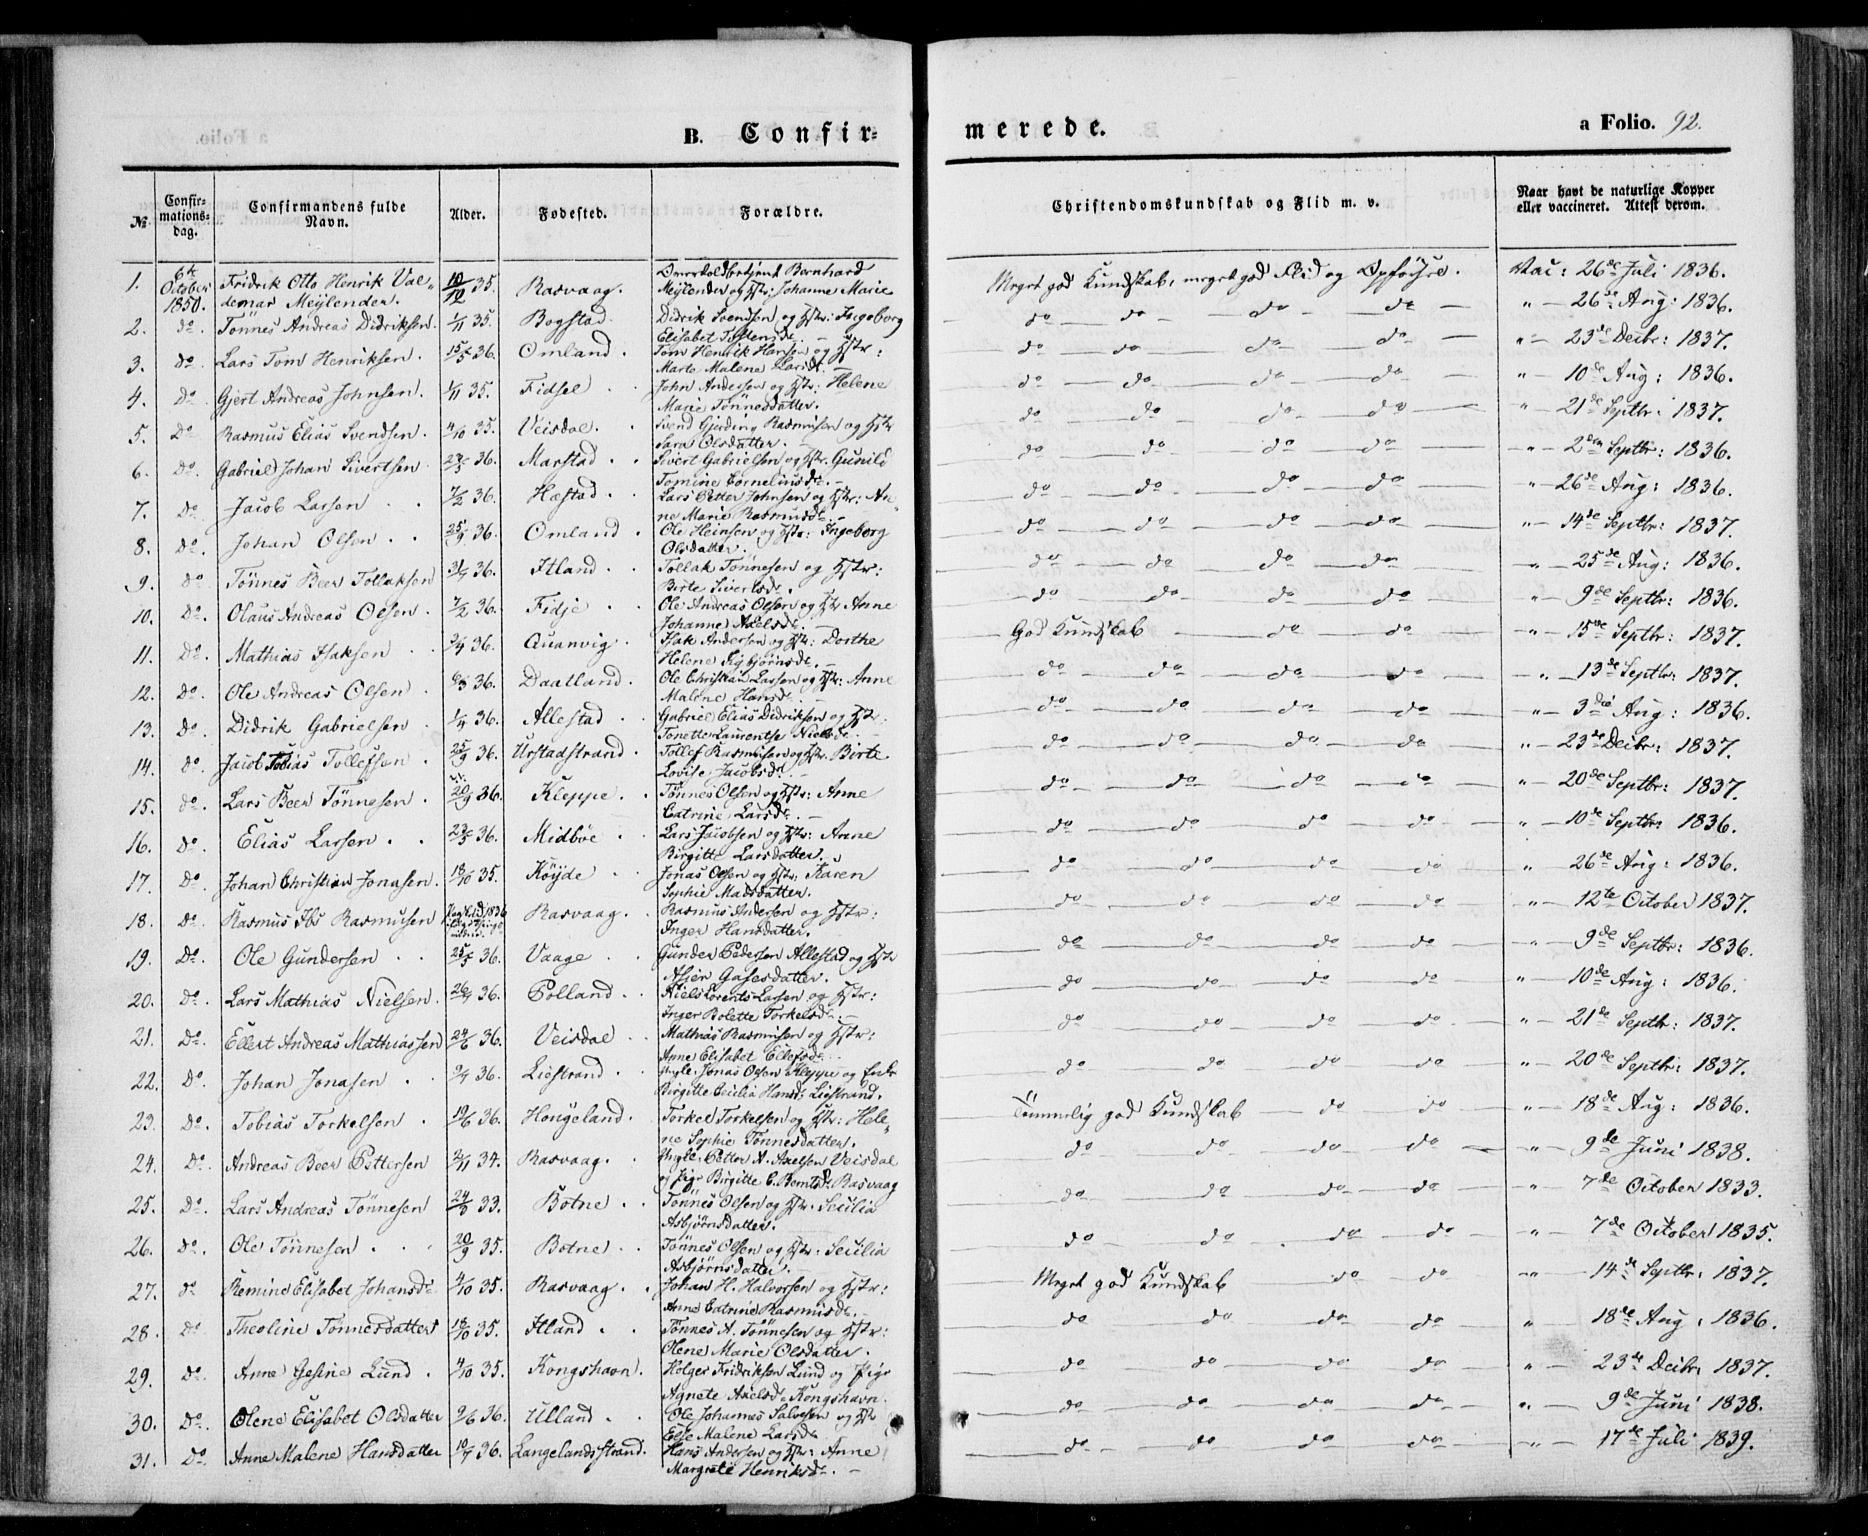 B. Confir= merede. a Folio. 92.
№ Confir-mations-dag. Confirmandens fulde Navn. Alder. Fodested. Forældre. Christendomskundskab og Flid m. v. Naar havt de naturlige Kopper eller vaccineret. Attest derom.
1. 6te October 1850. Fridrik Otto Henrik Valdemar Meÿlender. 10/12 35. Rasvaag. Bernhard Meÿlender og Hstr: Johanne Marie Meget god Kundskab, meget god Flid og Opførsel. Vac: 26de Juli 1836.
2. do Tönnes Andreas Didriksen. 1/11 35. Bogstad. Didrik Svendsen og Hstr: Ingeborg Elisabet Tostensd. do do do do " 26de Aug: 1836.
3. do Lars Tom Henriksen. 15/5 36. Omland. Tom Henrik Hansen og Hstr: Marte Malene Larsd. do do do do " 23de Decbr: 1837.
4. Do Gjert Andreas Johnsen. 1/11 35. Fidsel John Andersen og Hstr: Helene Marie Tönnesdatter. do do do do " 10de Aug: 1836.
5. Do Rasmus Elias Svendsen. 4/10 35. Veisdal. Svend Gjerding Rasmusen og Hstr Sara Olsdatter. do do do do " 21de Septbr: 1837.
6. Do. Gabriel Johan Sivertsen 36. Marstad Sivert Gabrielsen og Hstr. Gunild Tomine Cornelinsd. do do do do " 2den Septbr: 1836.
7. do Jacob Larsen 7/2 36. Hæstad Lars Petter Johnsen og Hstr: Anne Marie Rasmusd. do do do do " 26de Aug: 1836.
8. do. Johan Olsen 36. Omland Ole Heinsen og Hstr: Ingeborg Olsdatter. do do do do " 14de Septbr: 1837.
9. do Tönnes Beer Tollaksen 36. Itland Tollak Tönnesen og Hstr: Birte Sivertsd. do do do do " 25de Aug: 1836.
10. do. Olaus Andreas Olsen 7/2 36. Fidje Ole Andreas Olsen og Hstr Anne Johanne Axelsd. do do do do " 9de Septbr: 1836.
11. Do Mathias Isaksen 36. Quanvig Isak Andersen og Hstr: Dorthe Helene Sigbjörnsd. God Kundskab do do " 15de Septbr: 1837.
12. do. Ole Andreas Olsen 36. Daatland Ole Christian Larsen og Hstr: Anne Malene Hansd. do do do do " 13de Septbr: 1837.
13. do. Didrik Gabrielsen 36. Allestad Gabriel Elias Didriksen og Hstr. Tonette Laurentse Nielsd. do do do do " 3die Aug: 1836.
14. do. Jacob Tobias Tollefsen 25/9 36. Urstadstrand. Tollef Rasmusen og Hstr. Birte Lovise Jacobsd. do do do do " 23de Decbr: 1837.
15. do. Lars Beer Tönnesen 20/9 36. Kleppe. Tönnes Olsen og Hstr: Anne Catrine Larsd. do do do do " 20de Septbr: 1837.
16. do. Elias Larsen 36. Midböe Lars Jacobsen og Hstr: Anne Birgitte Larsdatter. do do do do " 10de Septbr: 1836.
17. do. Johan Christian Jonasen. 18/10 35. Köÿde Jonas Olsen og Hstr: Karen Sophie Madsdatter. do do do do " 26de Aug: 1836.
18. do. Rasmus Ibs Rasmusen Rasvaag. Rasmus Andersen og Hstr: Inger Hansdatter. do do do do " 12te October 1837.
19. Do. Ole Gundersen 25/5 36. Vaage Gunder Pedersen Allestad og Hstr Asier Gabesdatter. do do do do " 9de Septbr: 1836.
20. Do. Lars Mathias Nielsen. 36. Polland Niels Lorents Larsen og Hstr: Inger Bolette Torkelsd. do do do do " 10de Aug: 1836.
21. Do. Ellert Andreas Mathiassen 24/6 36. Veisdal Mathias Rasmusen og Hstr: Anne Elisabet Ellefsd. do do do do " 21de Septbr: 1837.
22. Do. Johan Jonasen 36. Liestrand Ungk: Jonas Olsen Kleppe og Enke Birgitte Cecilia Hansd: Liestrand. do do do do " 20de Septbr: 1837.
23. Do. Tobias Torkelsen 19/6 36. Hougeland. Torkel Torkelsen og Hstr: Helene Sophie Tönnesdatter. Temmelig god Kundskab do do " 18de Aug: 1836.
24. Do. Andreas Beer Pettersen 2/11 34. Rasvaag. Ungk: Petter A. Axelsen Veisdal og Pige Birgitte C. Berntsd. Rasvaag do do do do " 9de Juni 1838.
25. Do. Lars Andreas Tönnesen 33. Botne Tönnes Olsen og Hstr: Secilia Asbjörnsdatter. do do do do " 7de October 1833.
26. do. Ole Tönnesen 20/9 35. Botne Tönnes Olsen og Hstr: Secilia Asbjörnsdatter. do do do do " 7de October 1835.
27. do Remine Elisabet Johansd. 4/10 35. Rasvaag Johan H. Halvorsen og Hstr: Anne Catrine Rasmusd. Meget god Kundskab do do " 14de Septbr: 1837.
28. do Theoline Tönnesdatter 18/10 35. Itland Tönnes A. Tönnesen og Hstr: Olene Marie Olsdatter. do do do do " 18de Aug: 1836.
29. Do. Anne Gesine Lund 4/10 35. Kongshavn. Holger Fridriksen Lund og Pige Agnete Axelsd. Kongshavn. do do do do " 23de Decbr: 1837.
30. Do. Olene Elisabet Olsdatter 9/6 36. Ulland Ole Johannes Salvesen og Hstr Else Malene Larsd. do do do do " 9de Juni 1838.
31. Do. Anne Malene Hansdatter 36. Langelandsstrand. Hans Andersen og Hstr: Anne Margrete Henriksd. do do do do " 17de Juli 1839.